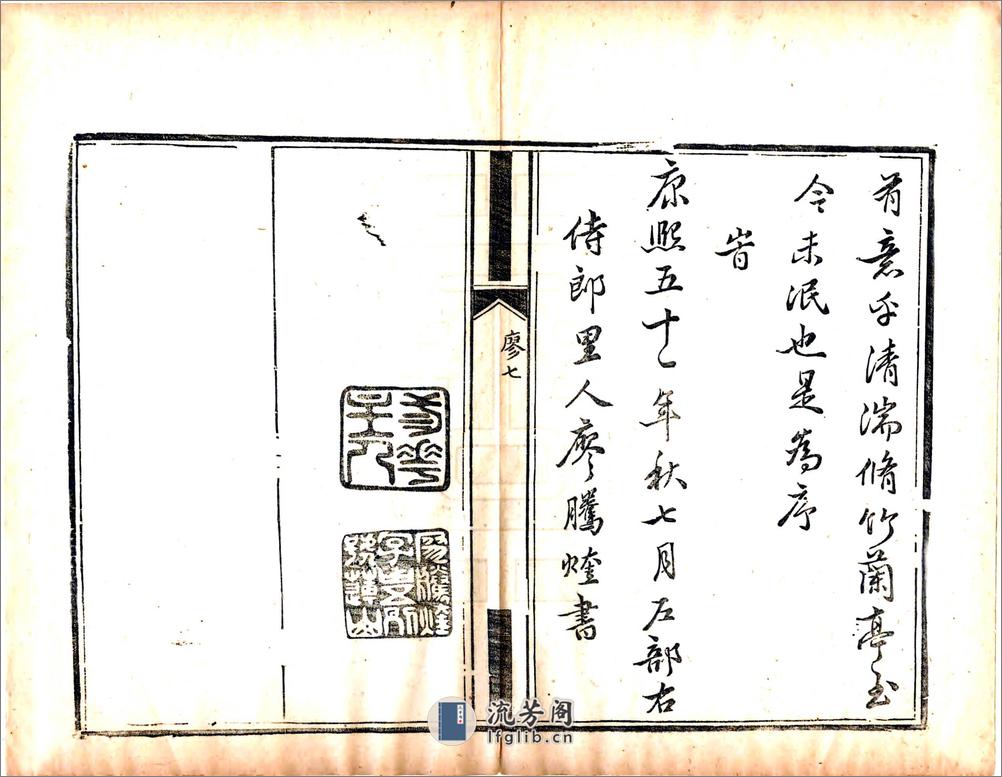 有意乎清湍脩竹蘭亭至
今未泯也是為序
旹
康熙五十一年秋七月戶部右
侍郎里人廖騰煃書
廖七
流芳阁
lfglib.cn